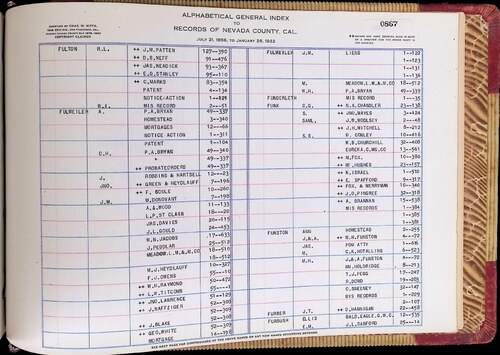 ALPHABETICAL GENERAL INDEX
TO
RECORDS OF NEVADA COUNTY, CAL.
JULY 21, 1856, TO JANUARY 26, 1922
0867
FULTON R.L. ++ J.M. PATTEN 127--390
++ D.B. NEFF 91--476
++ JAS. NEADICK 93--367
++ E.D. STANLEY 95--110
++ C. MARKS 83--354
PATENT 4--134
NOTICE-ACTION 1--424
R.E. MIS RECORD 2--51
FULWEILER A. P.A. BRYAN 49--337
HOMESTEAD 3--340
MORTGAGES 12--66
NOTICE ACTION 1--311
PATENT 1--104
C.H. P.A. BRYAN 49--340
" 49--337
++ PROBATEORDERS 49--337
J. ROBBINS & HARTSELL 12--23
JNO. ++ GREEN & HEYDLAUFF 7--196
++ F. SOULE 10--260
J.M. W. DONOVANT 7--198
A.G. WOOD 11--133
L.P. ST CLAIR 18--20
JAS. DAVIES 20--415
J.L. GOULD 24--453
W.N. JACOBS 17--433
J. PEDOLAR 25--512
MEADOW.L.M.&M.CO 18--510
18--512
M.J. HEYDLAUFF 10--327
F.J. OWENS 55--10
++ W.H. RAYMOND 50--470
++ L.H. TITCOMB 55---1
++ JNO. LAWRENCE 51--127
++ J. NAFFZIGER 52--308
52--309
++ J. BLAKE 52--309
++ GEO. WHITE 52--398
MORTGAGE 14--398
FULWEILER J.M. LIENS 1--122
1--123
1--131
1--136
M. MEADOW.L.M.&M.CO 18--512
W.H. P.A. BRYAN 49--339
FUNDERLETH MIS RECORD 1--35
FUNK C.G. ++ N.A. CHANDLER 23--151
S. ++ JNO. HAYES 3--424
SAML. J.W. WOOLSEY 2--48
++ J.H. MITCHELL 8--212
S.S. W. CONLEY 10--416
W.B. CHURCHILL 32--408
EUREKA.C.MG.CO 13--561
++ N. FOX, 10--380
++ WM. HUGHES 23--157
++ N. ISRAEL 1--510
++ E. SPAFFORD 6--317
++ FOX, & MERRYMAN 10--340
++ J.O. PINGREE 32--318
++ A. BRANNAN 15--538
MIS RECORDS 1--305
1--385
1--381
FUNSTON ANN HOMESTEAD 0--255
J.B.A. ++ M.H. FUNSTON 10--77
JAS. POW ATTY 1--616
M. C.K. HOTALING 6--523
M.H. ++ J.& A. FUNSTON 8--72
WM. HOLBRIDGE 8--213
T.J. FOGG 17--247
R. GOAD 10--19
C. SWEENEY 32--147
MIS RECORDS 9--209
2--107
FURBER J.T. ++ C. HANNIGAN 22--458
FURBUSH ELLIS BALD.EAGLE.G.M.C. 12--535
E.M. J.L. SANFORD 25--14